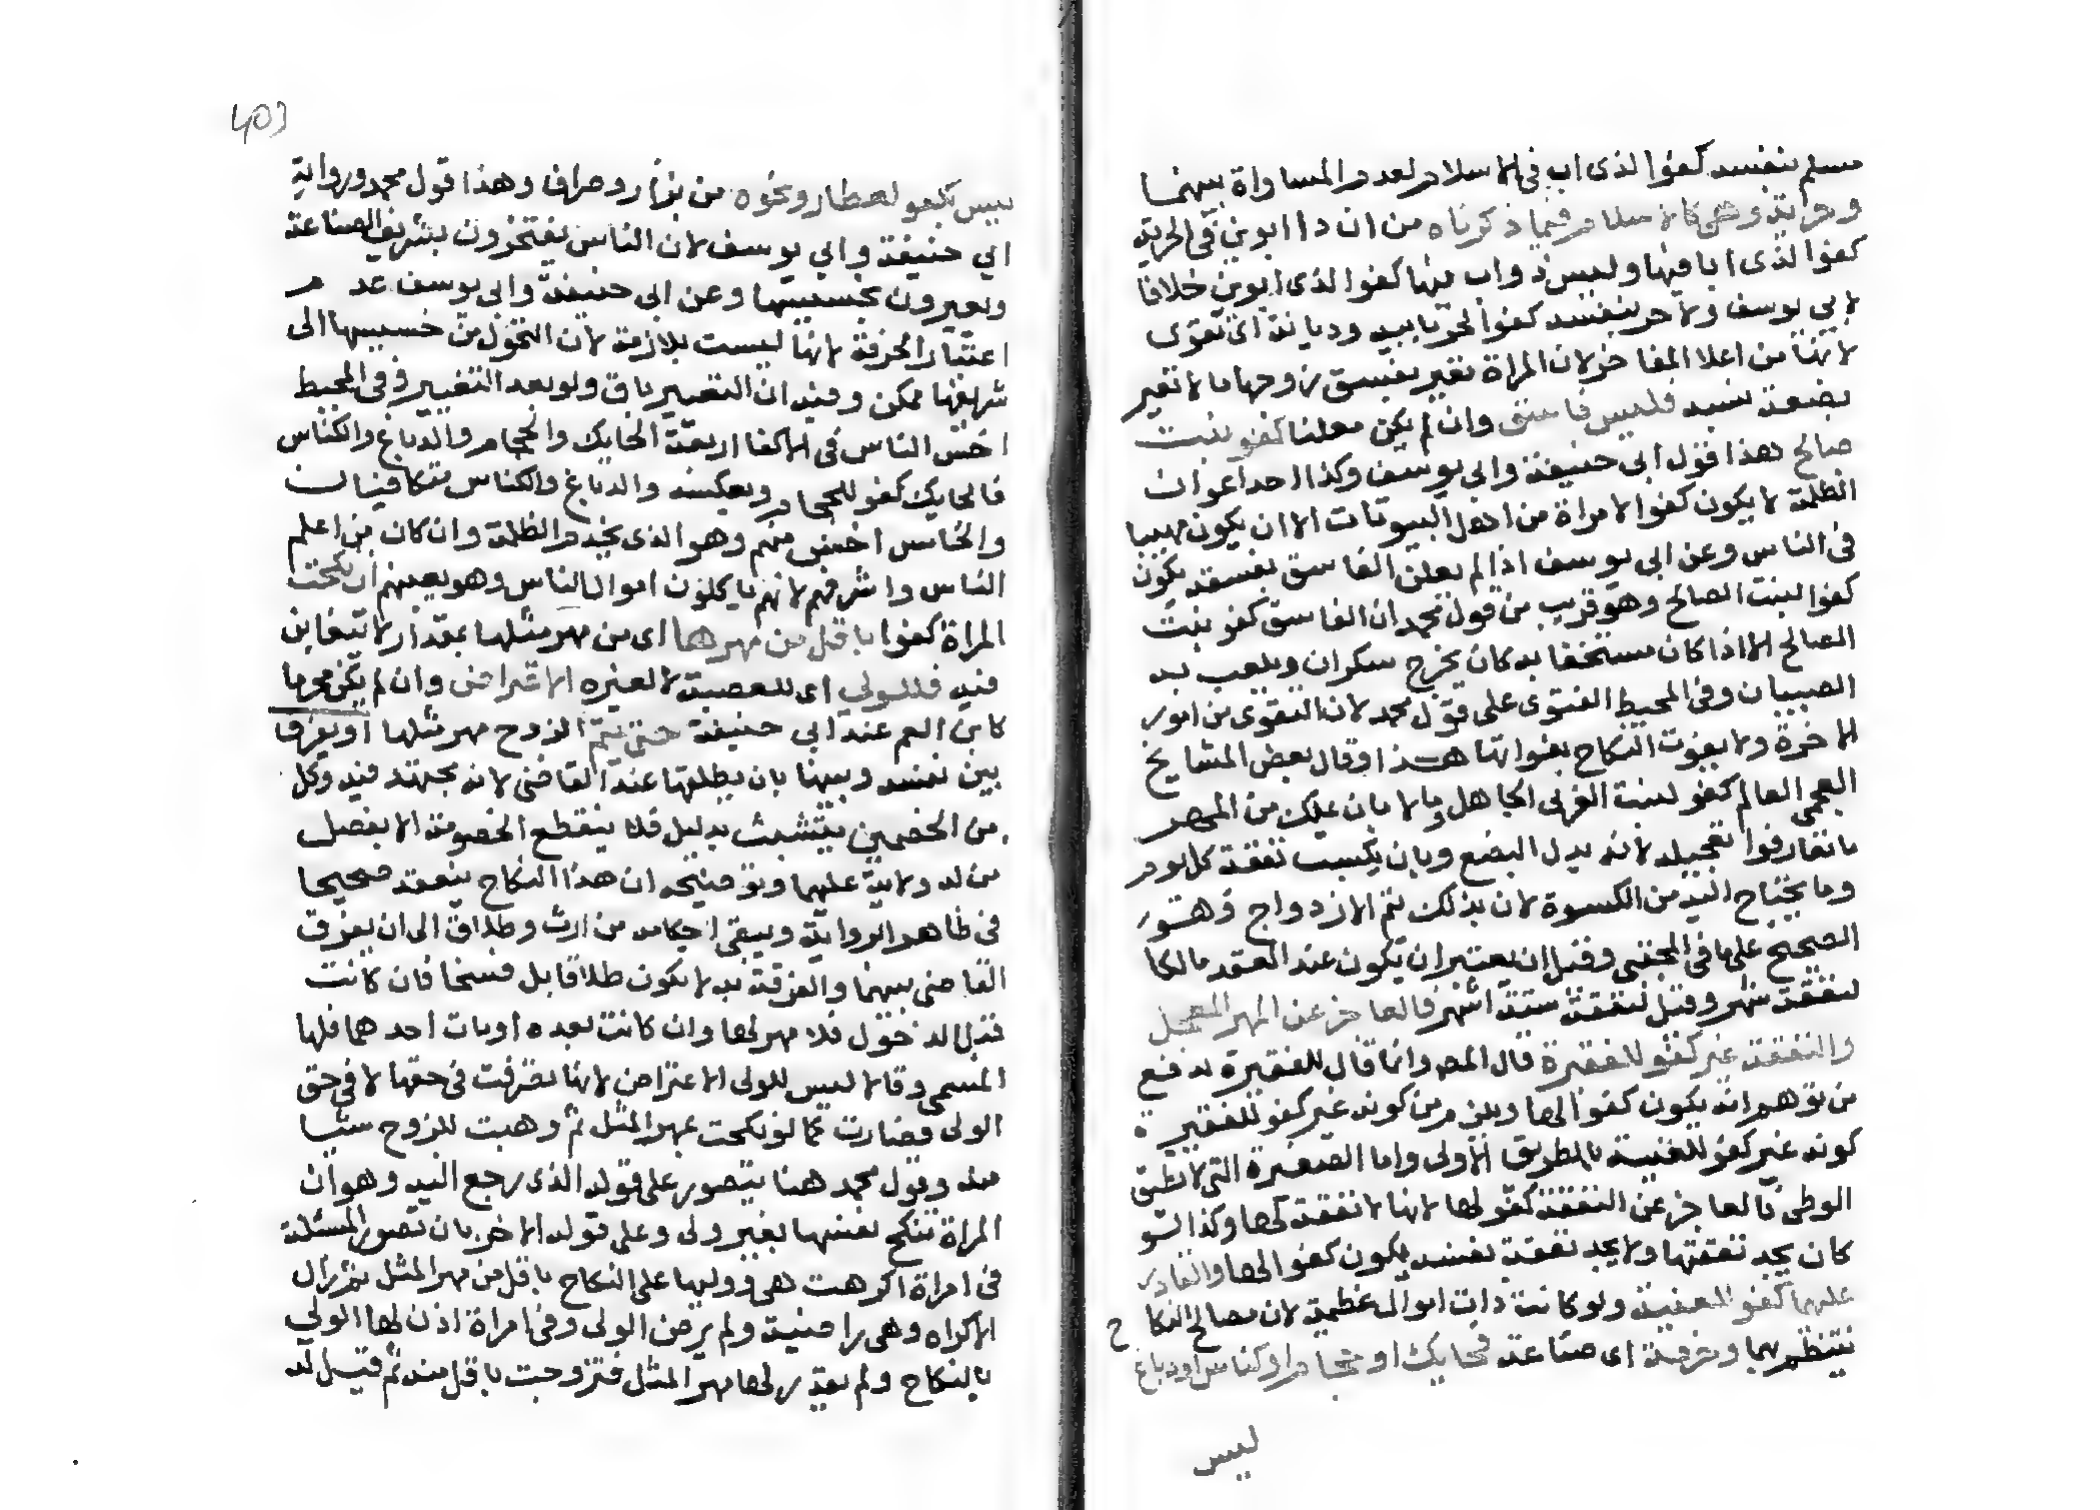 مسلم بنفسه كفوا لذى اب فى الاسلام لعدم المساواة بينهما
وحرية وهى كالاسلام فيما ذكرناه من ان ذا ابوين فى الحرية
كفوا لذى ابا فيها وليس ذو اب فيها كفوا لذى ابوين خلافا
لابي يوسف ولا حر بنفسه كفوا لحر بابيه وديانة اى تقوى
لانها من اعلا المفاخر لان المراة تعير بفسق زوجها ما لا تعير
بضعة نسبه فليس فاسق وان لم يكن معلنا كفو بنت
صالح هذا قول ابى حنيفة وابى يوسف وكذا احد اعوان
الظلمة لا يكون كفوا لامراة من اهل البيوتات الا ان يكون مهيبا
فى الناس وعن ابى يوسف اذا لم يعلن الفاسق بفسقه يكون
كفوا لبنت الصالح وهو قريب من قول محمد ان الفاسق كفو بنت
الصالح الا اذا كان مستخفا به كان يخرج سكران ويلعب به
الصبيان وفى المحيط الفتوى على قول محمد لان التقوى من امور
الاخرة ولا يفوت النكاح بفواتها هذا وقال بعض المشايخ
العجمى العالم كفو لبنت العربى الجاهل ومالا بان يملك من المهر
ما تعارفوا تعجيله لانه بدل البضع وبان يكسب نفقة كل يوم
وما يحتاج اليه من الكسوة لان بذلك يتم الازدواج وهو
الصحيح على ما فى المجتبى وقيل ان يعتبر ان يكون عند العقد مالكا
لنفقة شهر وقيل لنفقة ستة اشهر فالعاجز عن المهر المعجل
والنفقة غير كفو للفقيرة قال المص وانما قال للفقيرة لدفع
من توهم انه يكون كفوا لها ويلزم من كونه غير كفو للفقير
كونه غير كفو للغنية بالطريق الاولى واما الصغيرة التى لا تطيق
الوطئ فالعاجز عن النفقة كفو لها لانها لا نفقة لها وكذا لو
كان يجد نفقتها ولا يجد نفقة نفسه يكون كفوا لها والقادر
عليهما كفو للغنية ولو كانت ذات اموال عظيمة لان مصالح النكاح
تنتظم بهما وحرفة اى صناعة فحايك او حجام او كناس او دباغ
ليس
403
ليس بكفو لعطار ونحوه من بزاز وصراف وهذا قول محمد ورواية
ابي حنيفة وابي يوسف لان الناس يفتخرون بشريف الصناعة
ويعيرون بخسيسها وعن ابى حنيفة وابى يوسف عدم
اعتبار الحرفة لانها ليست بلازمة لان التحول من خسيسها الى
شريفها ممكن وفيه ان التعيير باق ولو بعد التغيير وفى المحيط
اخس الناس فى الاكفا اربعة الحايك والحجام والدباغ والكناس
فالحايك كفو للحجام وبعكسه والدباغ والكناس متكافيان
والخامس اخس منهم وهو الذى يخدم الظلمة وان كان من اعلم
الناس واشرفهم لانهم ياكلون اموال الناس وهو يعينهم ان نكحت
المراة كفوا باقل من مهرها اى من مهر مثلها بمقدار لا يتغابن
فيه فللولي اى للعصبة لا لغيره الاعتراض وان لم يكن محرما
كابن العم عند ابى حنيفة حتى يتم الزوج مهر مثلها او يفرق
بين نفسه وبينها بان يطلقها عند القاضى لانه مجتهد فيه وكل
من الخصمين يتشبث بدليل فلا ينقطع الخصومة الا بفصل
من له ولاية عليهما وتوضيحه ان هذا النكاح ينعقد صحيحا
فى ظاهر الرواية ويبقى احكامه من ارث وطلاق الى ان يفرق
القاضى بينهما والفرقة به لا يكون طلاقا بل فسخا فان كانت
قبل الدخول فلا مهر لها وان كانت بعده او مات احدهما فلها
المسمى وقالا ليس للولى الاعتراض لانها تصرفت فى حقها لا فى حق
الولى فصارت كما لو نكحت بمهر المثل ثم وهبت للزوج شيا
منه وقول محمد هنا يتصور على قوله الذى رجع اليه وهو ان
المراة تنكح نفسها بغير ولى وعلى قوله الاخر بان تصور المسئلة
فى امراة اكرهت هى ووليها على النكاح باقل من مهر المثل ثم زال
الاكراه وهى راضية ولم يرض الولى وفى امراة اذن لها الولي
بالنكاح ولم يقدر لها مهر المثل فتزوجت باقل منه ثم قيل له